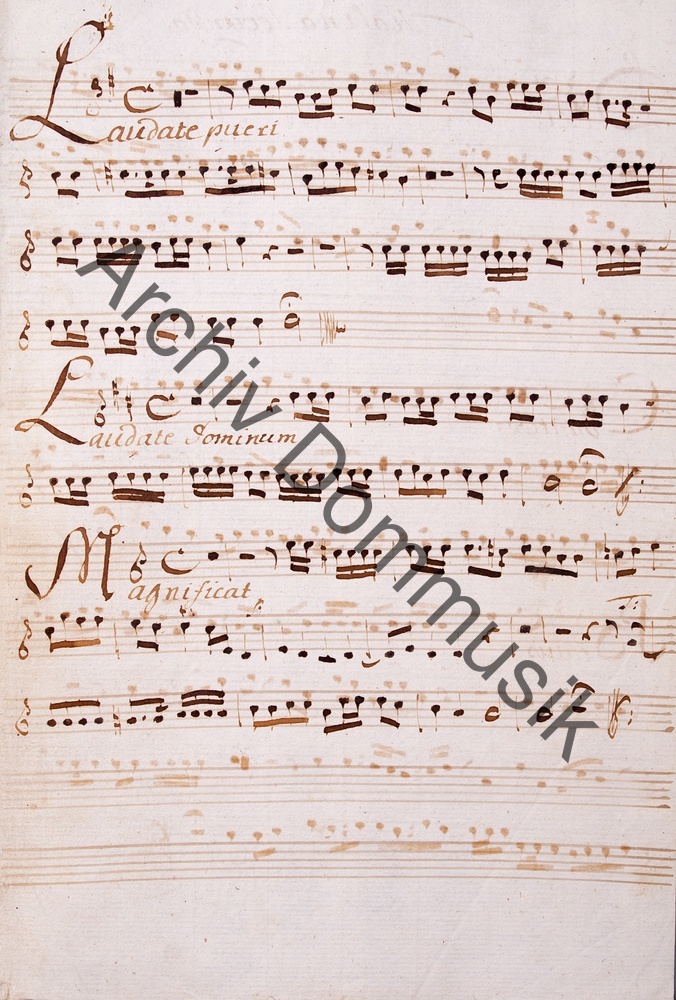 Laudate pueri
Laudate Dominum
Magnificat
Archiv Dommusik